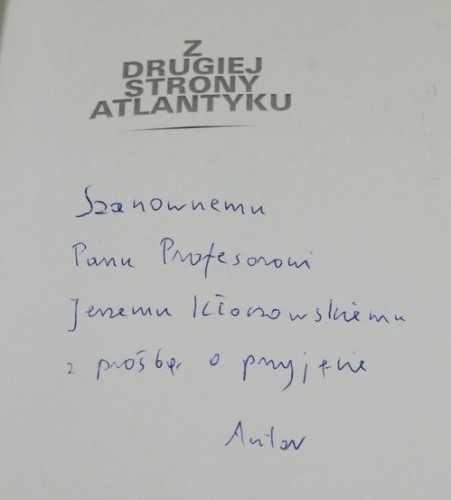 Z
DRUGIEJ
STRONY
ATLANTYKU
Szanownemu
Panu Profesorowi
Jerzemu Kłoczowskiemu
z prośbą o przyjęcie
Autor